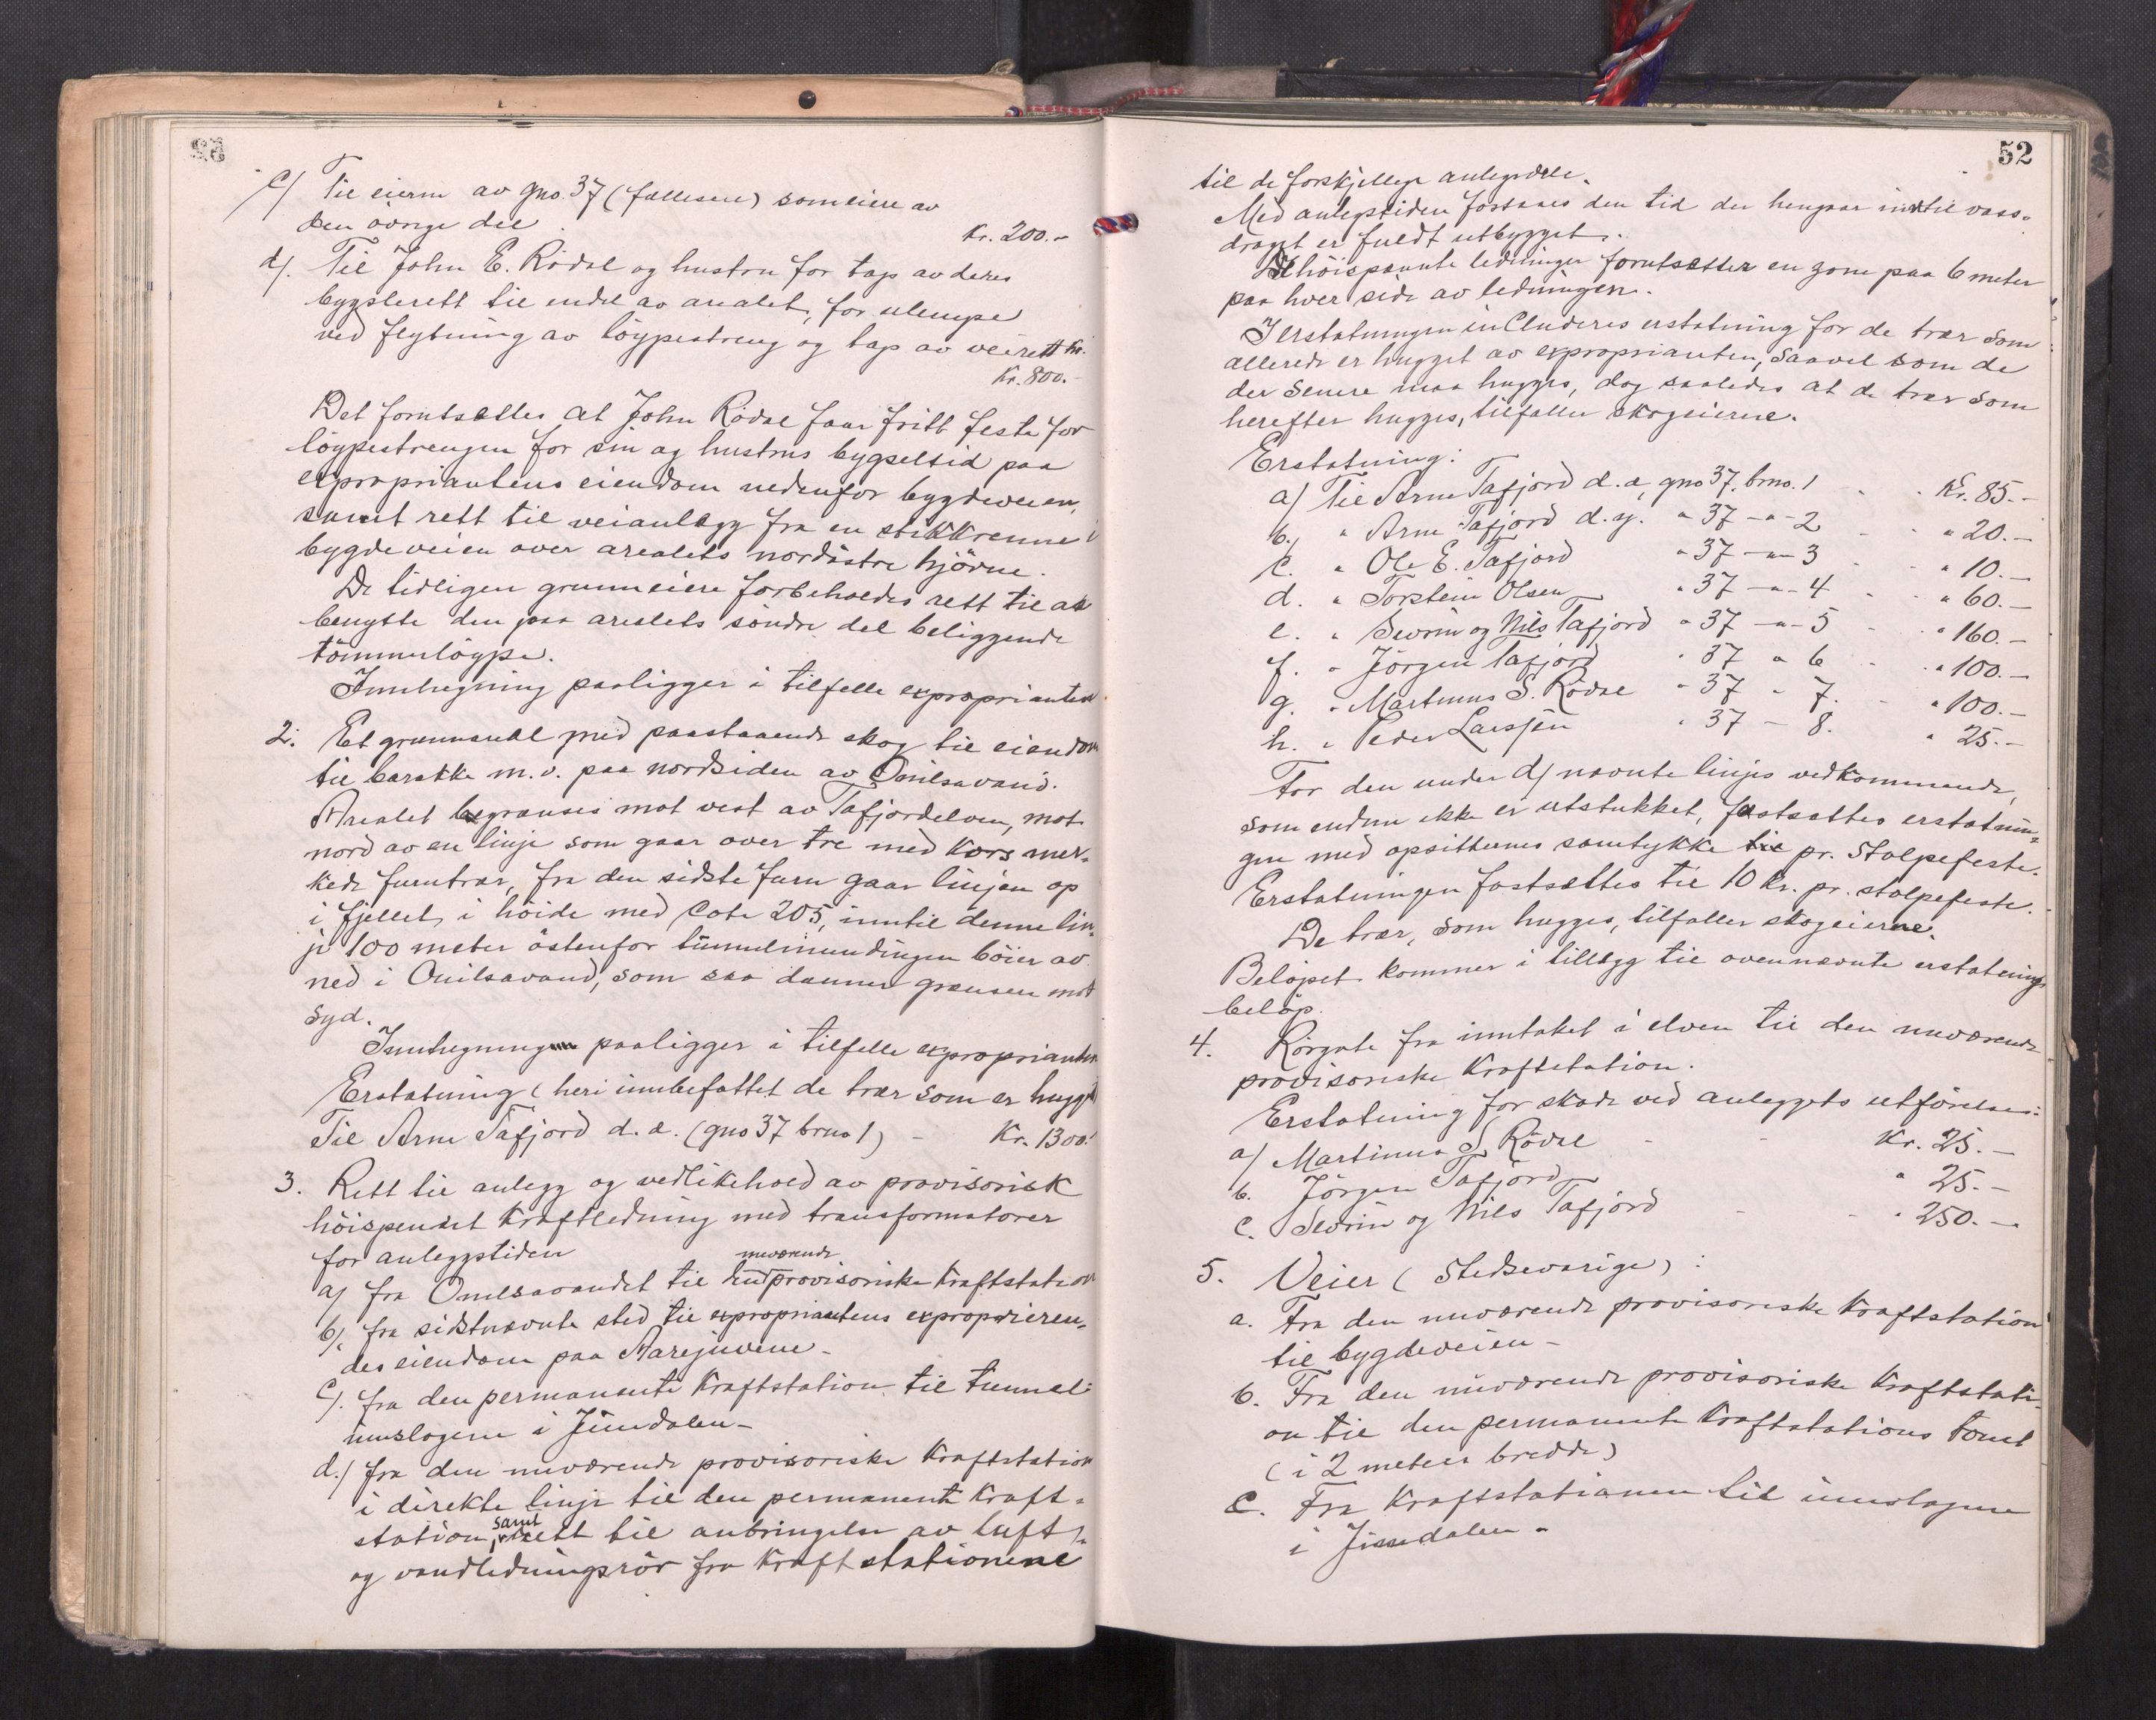 c/ Til eierne av gno. 37 (fellesere) som eiere av
den övrige del. Kr. 200.-
d/. Til John E. Rödal og hustru for tap av deres
bygslerett til endel av arealet, for ulempe
ved flytning av löypestreng og tap av veirett Kr.
Kr. 800.-
Det forutsættes at John Rödal faar fritt feste for
löypestrengen for sin og hustrus bygseltid paa
expropriantens eiendom nedenfor bygdeveien,
samt rett til veianlegg fra en stikkrenne i
bygdeveien over arealets nordöstre hjörne.
De tidligere grunneiere forbeholdes rett til at
benytte den paa arealets söndre del beliggende
tömmerlöype.
Innhegning paaligger i tilfelle exproprianten
2. Et grunnareal med paastaaende skog til eiendom
til barakke m.v. paa nordsiden av Onilsavand.
Arealet begrænses mot vest av Tafjordelven, mot
nord av en linje som gaar over tre med kors mer-
kede furutrær, fra den sidste furu gaar linjen op
i fjellet i höide med Cote 205, inntil denne lin-
je 100 meter östenfor tunnelmundingen böier av
ned i Onilsavand, som saa danner grænsen mot
syd.
Innhegning paaligger i tilfelle exproprianten
Erstatning (heri innbefattet de trær som er hugget)
Til Arne Tafjord d.e. (gno 37 brno 1) - Kr. 1300.-
3. Rett til anlegg og vedlikehold av provisorisk
höispendt kraftledning med transformatorer
for anleggstiden
nuværende
a) fra Onilsavandet til provisoriske kraftstation
b). fra sidstnævnte sted til expropriantens expropprieren-
des eiendom paa Aarejuvene -
c). fra den permanente kraftstation til tunnel-
innslagene i Jimdalen -
d.) fra den nuværende provisoriske kraftstation
i direkte linje til den permanente kraft-
samt
station, rett til anbringelse av luft-
og vandledningsrör fra kraftstationene
52
til de forskjellige anlegsdele.
Med anlegstiden forstaaes den tid der hengaar inntil vass-
draget er fuldt utbygget.
De höispænnte ledninger forutsætter en zone paa 6 meter
paa hver side av ledningen.
I erstatningen inCluderes erstatning for de trær som
allerede er hugget av exproprianten, saavel som de
der senere maa hugges, dog saaledes at de trær som
herefter hugges, tilfaller skogeierne.
Erstatning:
a) Til Arne Tafjord d.e, gno 37, brno. 1 - - Kr. 85.-
b.) " Arne Tafjord d.y. " 37 -"- 2 - - " 20.-
c. " Ole E. Tafjord " 37 -"- 3 - - " 10.-
d. " Torstein Olsen " 37 -"- 4 - - " 60.-
e. " Sevrin og Nils Tafjord " 37 -"- 5 - " 160.-
f. " Jörgen Tafjord " 37 " 6 - - " 100.-
g. " Martinus S. Rödal " 37 " 7. - " 100.-
h. " Peder Larssen " 37 - 8. " 25.-
For den under d/ nævnte linjes vedkommende,
som endnu ikke er utstukket, fastsættes erstatnin-
gen med opsitternes samtykke til pr. Stolpefeste.
Erstatningen fastsættes til 10 kr. pr. stolpefeste.
De trær, som hugges, tilfaller skogeierne.
Belöpet kommer i tillegg til ovennævnte erstatnings
belöp.
4. Rörgate fra inntaket i elven til den nuværende
provisoriske kraftstation.
Erstatning for skade ved anleggets utförelse:
a/ Martinus S. Rödal - - Kr. 25.-
b. Jörgen Tafjord " 25.-
c. Sevrin og Nils Tafjord - - " 250.-
5. Veier (Stedsevarige):
a. Fra den nuværende provisoriske kraftstation
til bygdeveien -
b. Fra den nuværende provisoriske kraftstati-
on til den permanente kraftstations tomt
(i 2 meters bredde)
c. Fra kraftstationen til innslagene
i Jimdalen -